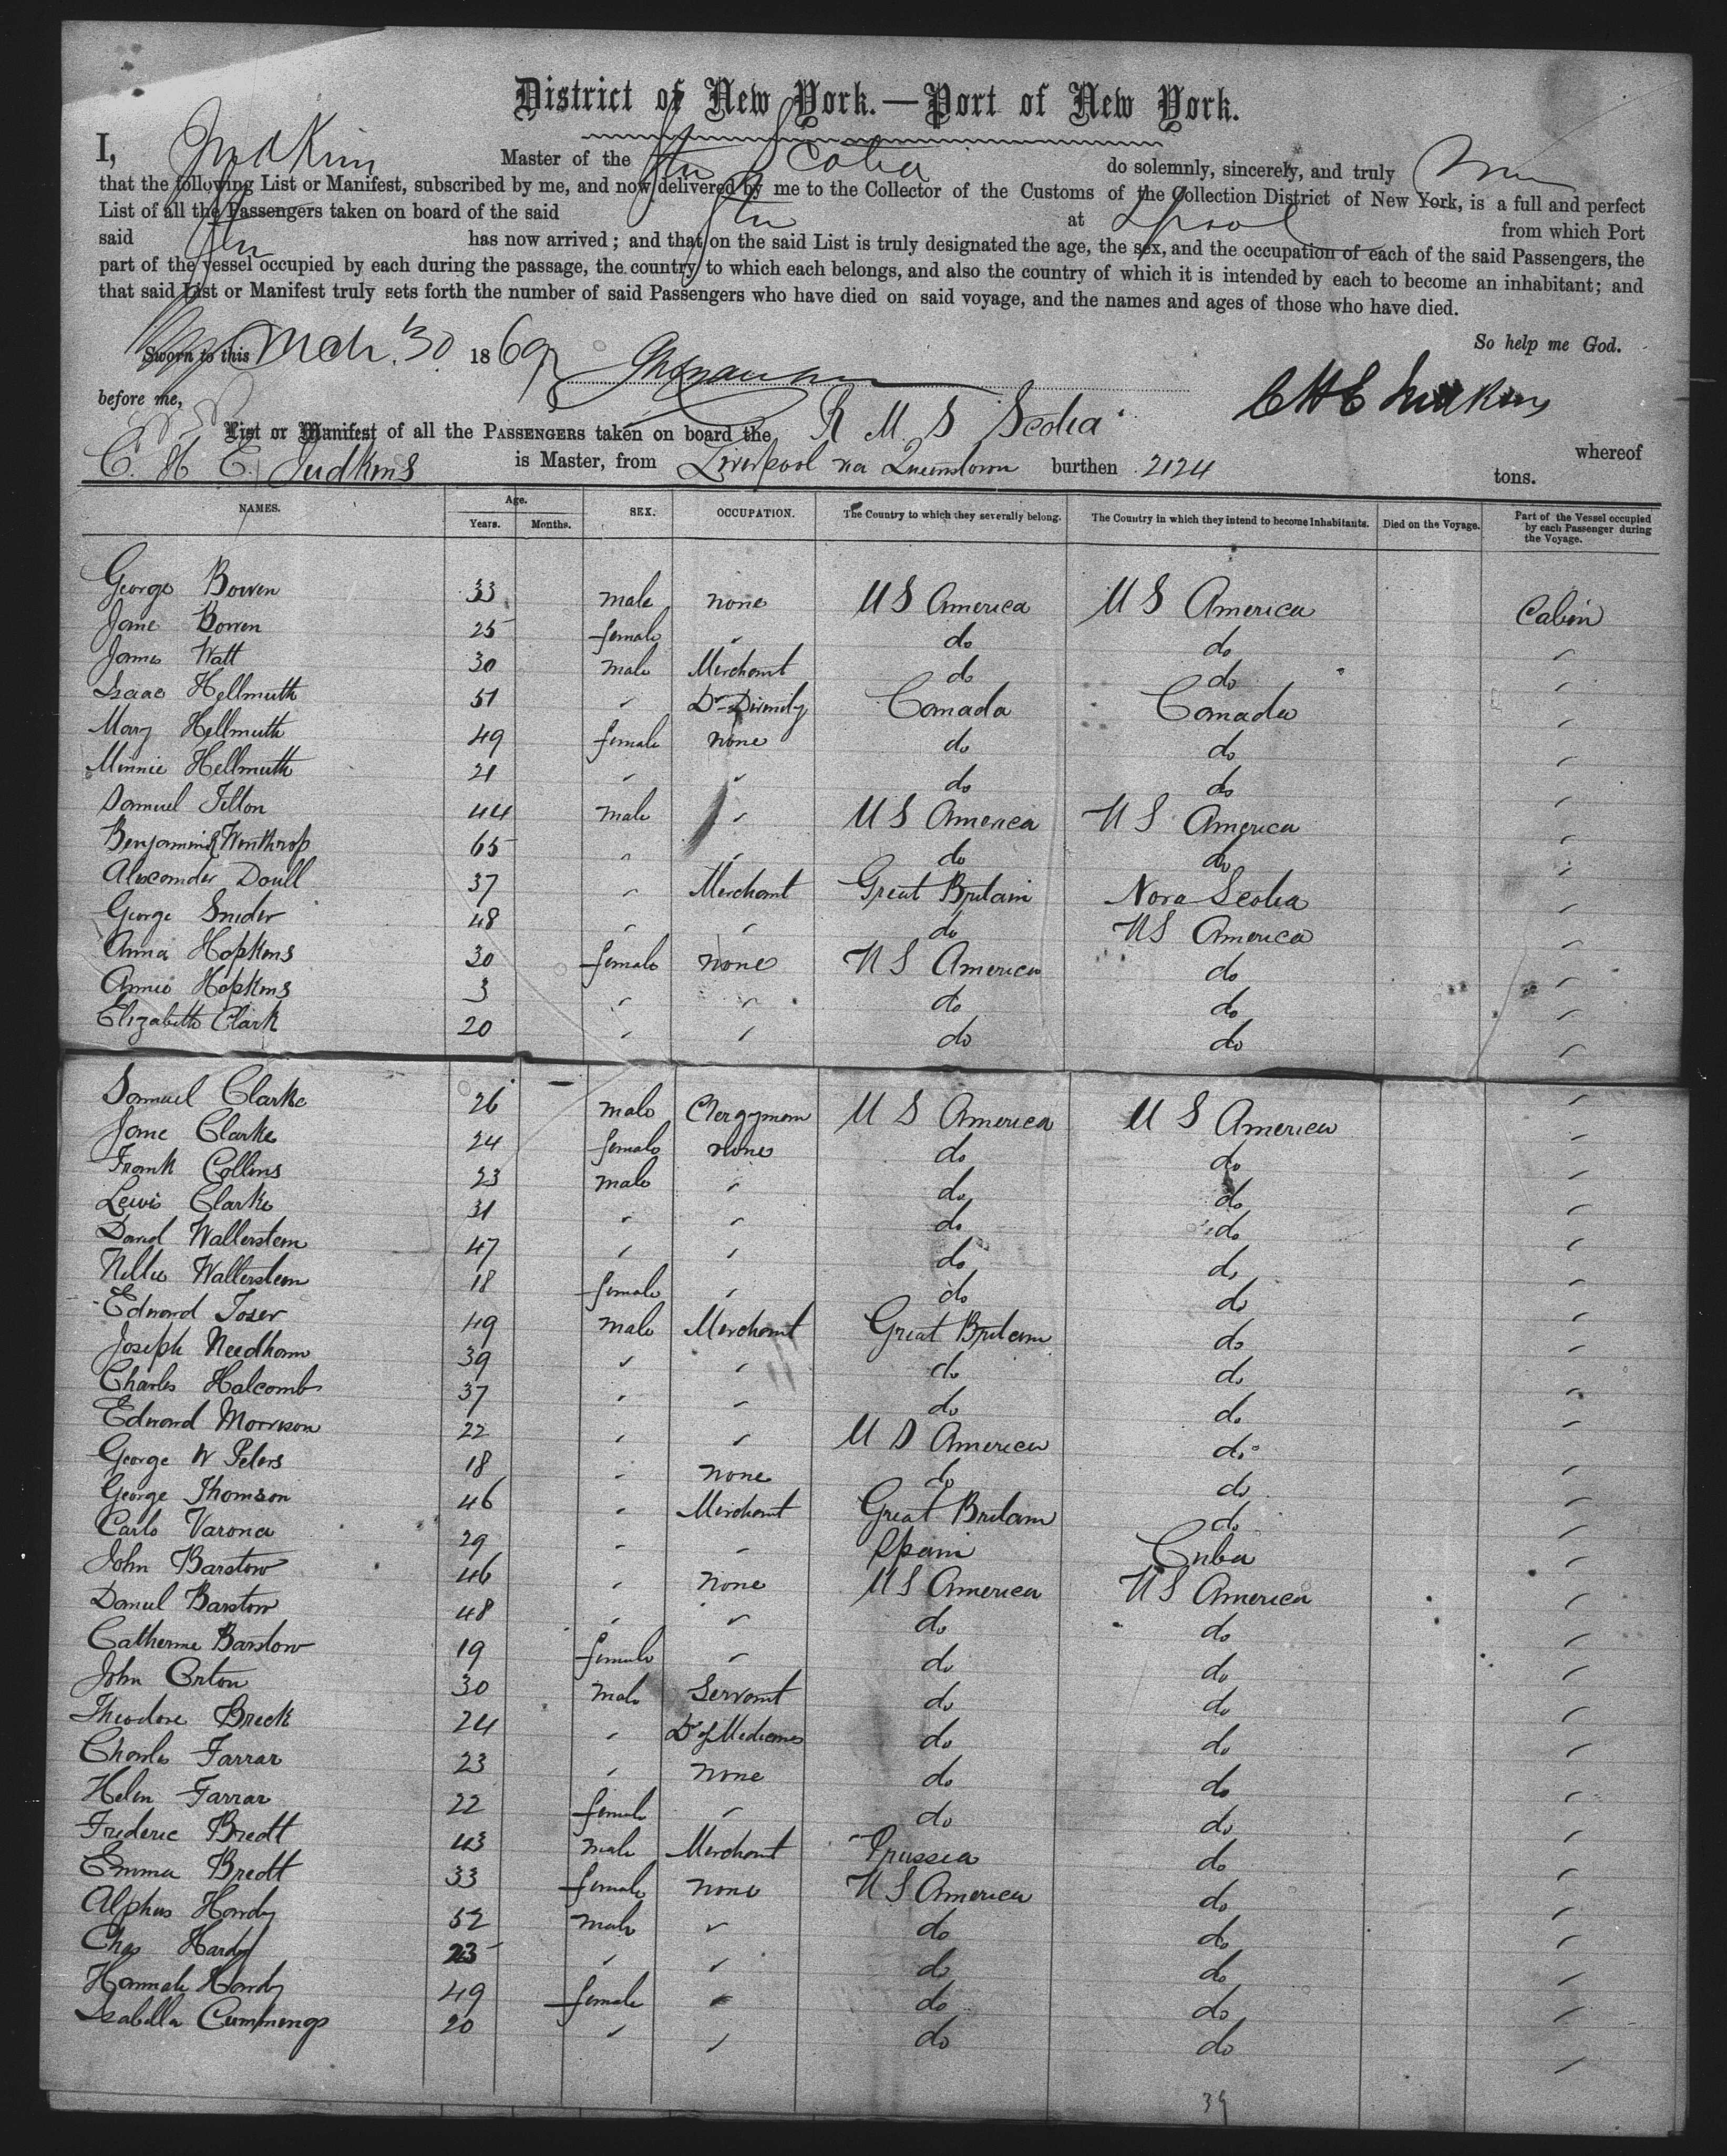 District of New York.—Port of New York.
I, Judkins Master of the Str Scotia do solemnly, sincerely, and truly
that the following List or Manifest, subscribed by me, and now delivered by me to the Collector of the Customs of the Collection District of New York, is a full and perfect
List of all the Passengers taken on board of the said Str at Lpool from which Port
said Str has now arrived; and that on the said List is truly designated the age, the sex, and the occupation of each of the said Passengers, the
part of the vessel occupied by each during the passage, the country to which each belongs, and also the country of which it is intended by each to become an inhabitant; and
that said List or Manifest truly sets forth the number of said Passengers who have died on said voyage, and the names and ages of those who have died.
So help me God.
Sworn to this Mch. 30 1869
before me, C H E Judkins
List or Manifest of all the PASSENGERS taken on board the R M S Scotia whereof
C. H E. Judkins is Master, from Liverpool via Queenstown burthen 2124 tons.
NAMES. Age. Years. Months. SEX. OCCUPATION. The Country to which they severally belong. The Country in which they intend to become Inhabitants. Died on the Voyage. Part of the Vessel occupied by each Passenger during the Voyage.
George Bowen 33 male none U S America U S America Cabin
Jane Bowen 25 female " do do "
James Watt 30 male Merchant do do "
Isaac Hellmuth 51 " Dr Divinity Canada Canada "
Mary Hellmuth 49 female none do do "
Minnie Hellmuth 21 " " do do "
Samuel Tilton 44 male " U S America U S America "
Benjamin R Winthrop 65 " " do do "
Alexander Doull 37 " Merchant Great Britain Nova Scotia "
George Snider 48 " " do U S America "
Anna Hopkins 30 female none U S America do "
Annie Hopkins 3 " " do do "
Elizabeth Clark 20 " " do do "
Samuel Clarke 26 male Clergyman U S America U S America "
Jane Clarke 24 female none do do "
Frank Collins 23 male " do do "
Lewis Clarke 31 " " do do "
David Wallerstein 47 " " do do "
Nellie Wallerstein 18 female " do do "
Edward Toser 49 male Merchant Great Britain do "
Joseph Needham 39 " " do do "
Charles Halcomb 37 " " do do "
Edward Morrison 22 " " U S America do "
George W Peters 18 " none do do "
George Thomson 46 " Merchant Great Britain do "
Carlo Varona 29 " " Spain Cuba "
John Barstow 46 " none U S America U S America "
Daniel Barstow 48 " " do do "
Catherine Barstow 19 female " do do "
John Orton 30 male Servant do do "
Theodore Breck 24 " Dr of Medicine do do "
Charles Farrar 23 " none do do "
Helen Farrar 22 female " do do "
Frederic Bredt 43 male Merchant Prussia do "
Emma Bredt 33 female none U S America do "
Alpheus Hardy 52 male " do do "
Chas Hardy 23 " " do do "
Hannah Hardy 49 female " do do "
Isabella Cummings 20 " " do do "
39